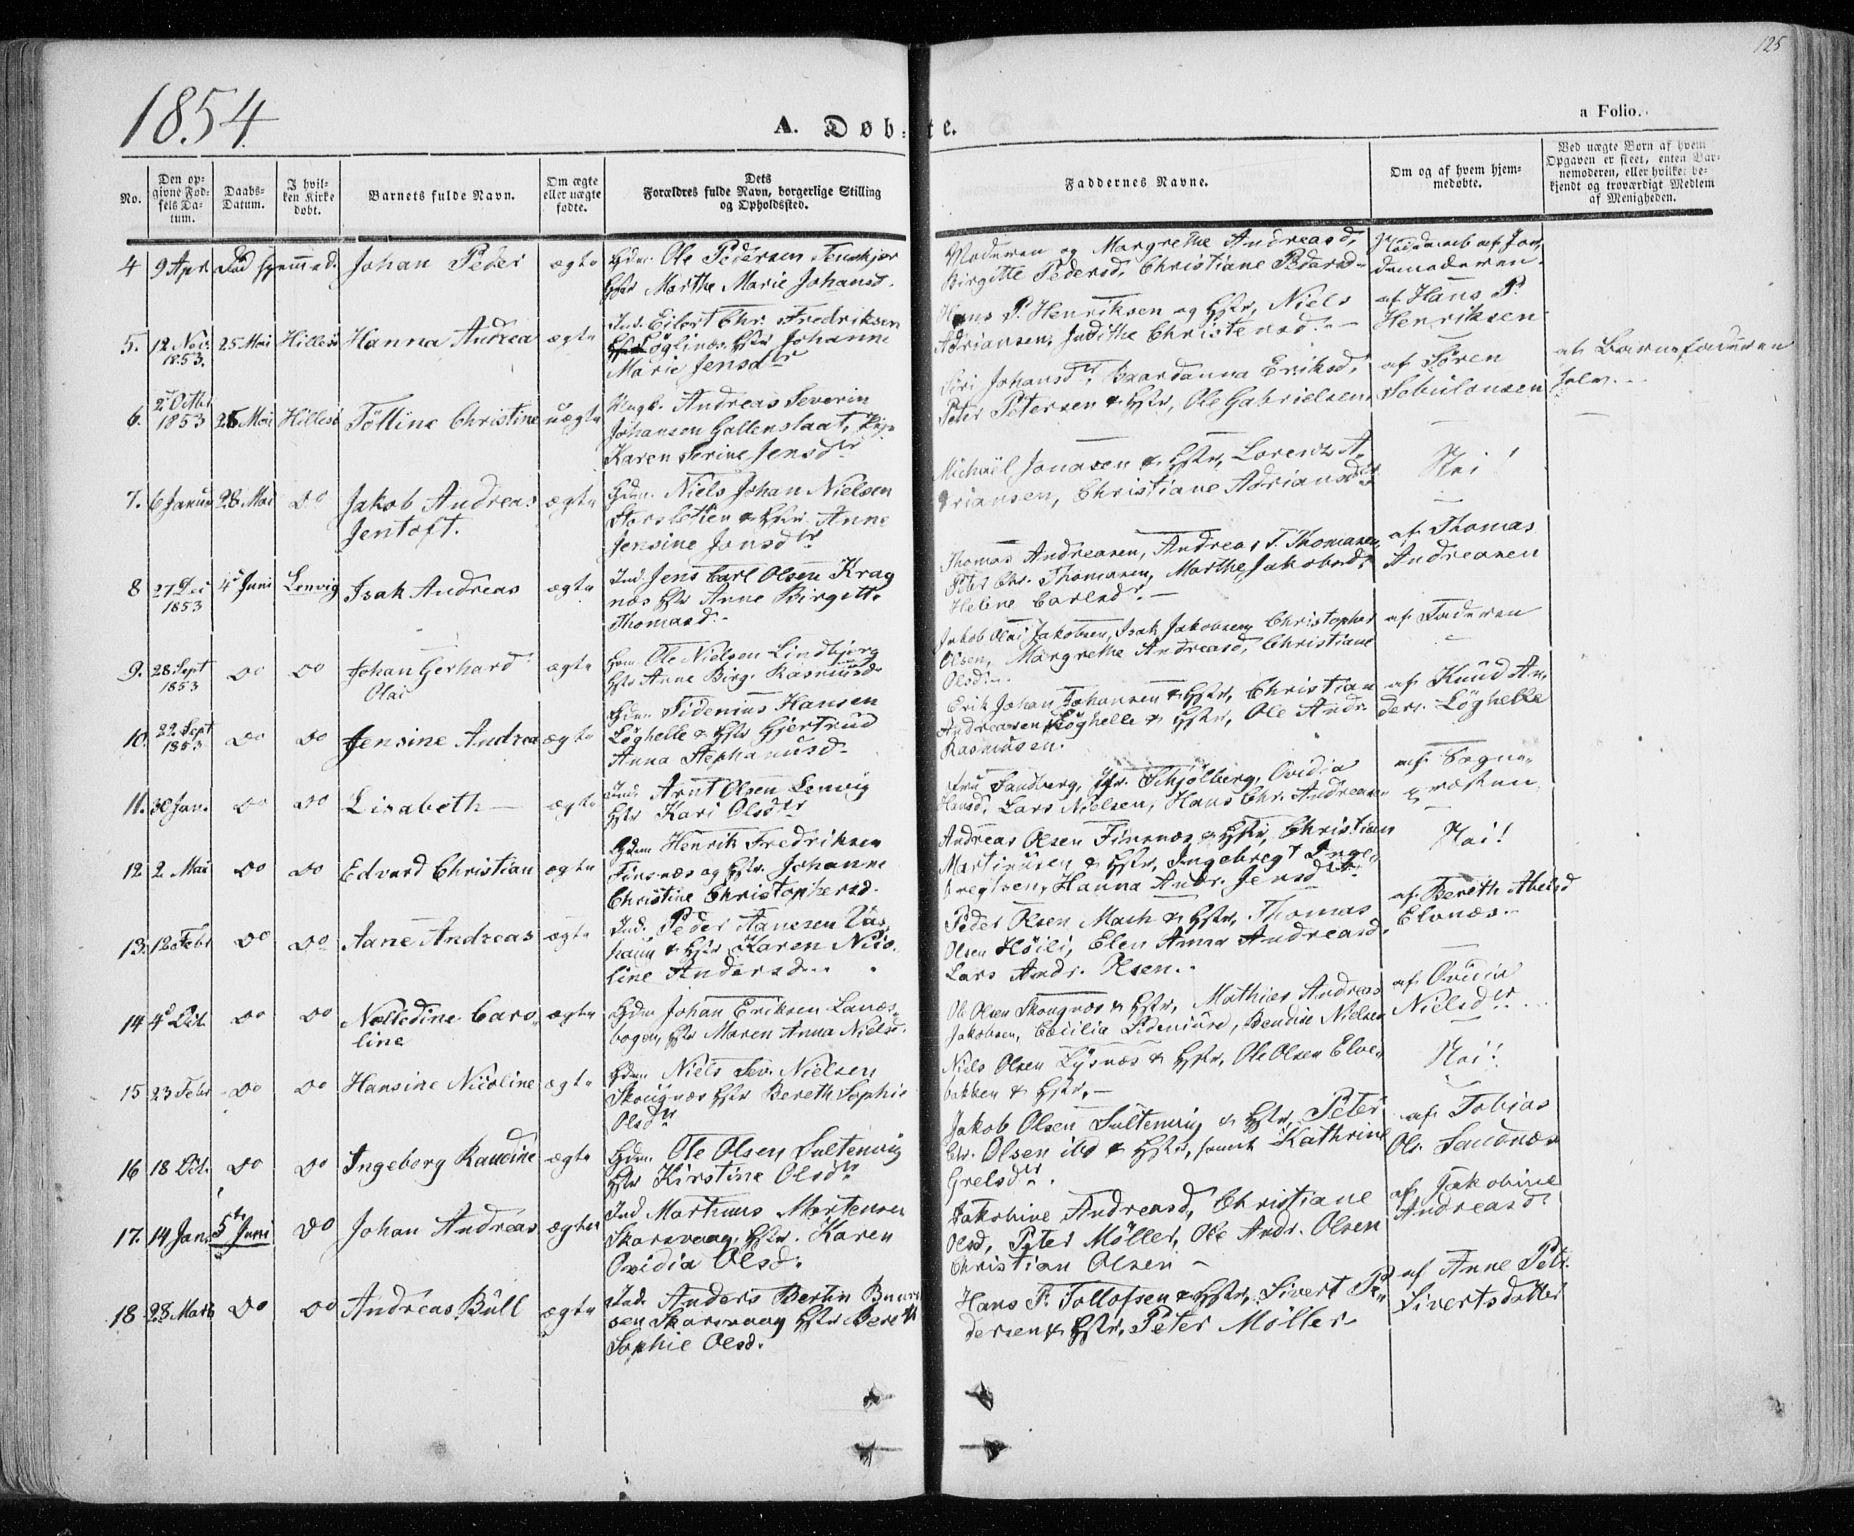 125
1854
A. Døb-te.
a Folio.
No.
Den op-
givne Fød-
sels Da-
tum.
Daabs-
Datum.
I hvil-
ken Kirke
døbt.
Barnets fulde Navn.
Om ægte
eller uægte
fødte.
Dets
Forældres fulde Navn, borgerlige Stilling
og Opholdssted.
Faddernes Navne.
Om og af hvem hjem-
medøbte.
Ved uægte Børn af hvem
Opgaven er skeet, enten Bar-
nemoderen, eller hvilke be-
kjendt og troværdigt Medlem
af Menigheden.
4 9 Apr. Johan Peder ægte
Gdm. Ole Pedersen
Hstr Marthe Marie Johansd.
Moderen og Margrethe Andreasd,
Birgitte Pedersd, Christiane Pedersd
af Jor
demoderen.
5. 12 Nov. 1853. 25 Mai Hillesø Hanna Andrea ægte
Ind. Eilert Chr. Fredriksen
Løglinæs. Hstr Johanne
Marie Jensdtr
Hans P. Henriksen og Hstr, Niels
Adriansen, Judithe Christensd. –
af Hans P.
Henriksen
6. 2 Octbr 1853 25 Mai Hillesø Tölline Christine uægte
Ungk. Andreas Severin
Johansen Gallenslaat, Pig.
Karen Serine Jensdtr
Siri Johansdtr, Baardanna Eriksd,
Peter Petersen & Hstr, Ole Gabrielsen
af Søren
Sebulonsen
af Barnefaderen
selv.
7. 6 Januar 28 Mai do Jakob Andreas
Jentoft. ægte
Gdm. Niels Johan Nielsen
Storslotten & Hstr Anne
Jensine Jonsdtr
Michael Jonasen & Hstr, Lorentz A
driansen, Christiane Adriansdtr
Nei!
8 27 Dec 1853 4de Juni Lenvig Isak Andreas ægte
Ind. Jens Carl Olsen Krag
næs Hstr Anne Birgitte
Thomasd.
Thomas Andreasen, Andreas T. Thomasen,
Peter Chr. Thomasen, Marthe Jakobsd,
Helene Carlsd. –
af Thomas
Andreasen
9. 28 Sept 1853 do do Johan Gerhard
Olai ægte
Gdm Ole Nielsen Lindbjerg
Hstr Anne Birg. Rasmusd.
Jakob Olai Jakobsen, Isak Jakobsen, Christopher
Olsen, Margrethe Andreasd, Christiane
Olsd.
af Faderen
10. 22 Sept 1853 do do Jensine Andrea ægte
Gdm. Sidenius Hansen
Løghelle & Hstr Gjertrud
Anna Stephanusd.
Erik Johan Johansen & Hstr, Christian
Andreasen Løghelle & Hstr, Ole Andr.
Rasmusen.
af Knud An
ders. Løghelle
11. 30 Jan. do do Lisabeth ægte
Ind. Arnt Olsen Lenvig
Hstr Kari Olsdtr
Fru Sandberg, Jfr. Schjølberg, Ovidia
Hansd, Lars Nielsen, Hans Chr. Andreasen
af Sogne-
præsten
12. 2. Mai do do Edvard Christian ægte
Gdm Henrik Fredriksen
Finsnæs og Hstr Johanne
Christine Christophersd.
Andreas Olsen Finsnæs & Hstr, Christian
Martinusen & Hstr, Ingebregt Inge-
bregtsen, Hanna Andr. Jensdtr
Nei!
13. 12 Febr do do Aane Andreas ægte
Ind. Peder Aanesen
& Hstr Karen Nico-
line Andersd.
Peder Olsen Mach & Hstr, Thomas
Olsen Høili, Elen Anna Andreasd,
Lars Andr. Olsen.
af Bereth Abelsd
Elvnæs.
14 4de Oct. do do Caro-
line ægte
Gdm Johan Eriksen Lanæs-
bogen, Hstr Maren Anna Nielsd.
Ole Olsen Skougnæs & Hstr, Mathias Andreas
Jakobsen, Cecilia Sideniusd, Bendix Nielsen
af Ovidia
Nielsdtr
15 23 Febr do do Hansine Nicoline ægte
Gdm. Niels Sev. Nielsen
Skougnæs Hstr Bereth Sophie
Olsdtr
Niels Olsen Lysnæs & Hstr, Ole Olsen Elve-
bakken & Hstr. –
Nei!
16 18 Oct. do do Ingeborg ægte
Gdm. Ole Olsen Sultenvig
Hstr Kirstine Olsdtr
Jakob Olsen Sultenvig & Hstr, Peter
Chr. Olsen ibd & Hstr, samt Kathrine
Grelsdtr.
af Tobias
Ols. Sandnæs
17. 14 Jan. 5te Juni do Johan Andreas ægte
Ind Martinus Mortensen
Skarsvaag, Hstr. Karen
Ovidia Olsd.
Jakobine Andreasd, Christiane
Olsd, Peter Møller, Ole Andr. Olsen
Christian Olsen –
af Jakobine
Andreasd.
18 28 Marts do do Andreas Bull ægte
Ind. Anders Bertin
sen Skarsvaag Hstr Bereth
Sophie Olsd.
Hans P. Tollofsen & Hstr, Sivert Pe-
dersen & Hstr, Peter Møller
af Anne Petr.
Sivertsdatter